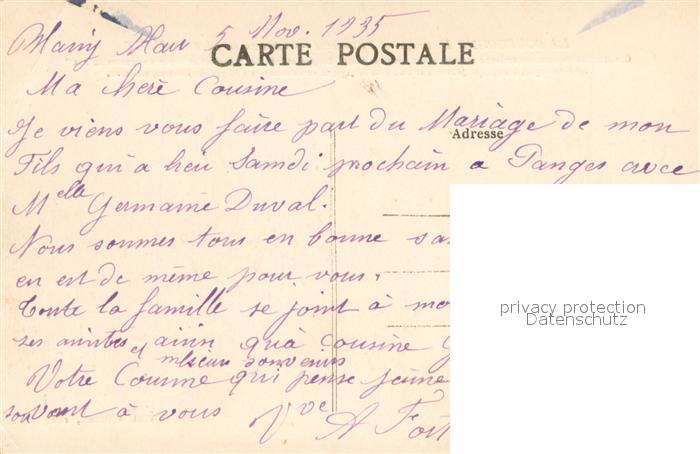 Mav 5 Nov. 1935
CARTE POSTALE
Ma here Cousine
Je viens vous faire part du Mariage de mon
Adresse
Fils qui a lieu Samdi prochain a Panges avec
Melle Germaine Duval.
Nous sommes tous en bonne sa
en est de même pour vous.
privacy protection
Datenschutz
Toute la famille se joint à mo
ses ainsi qu'à Cousine G
et meilleurs souvenirs
Votre Cousine qui pense
souvent à vous Vve A Fort